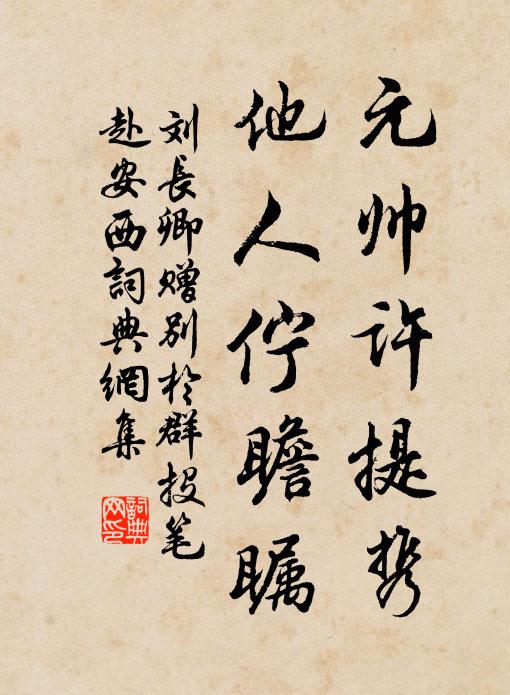 元帅许提携
他人伫瞻瞩
刘長卿赠别於群投笔
赴安西詞典網集
詞典
网印